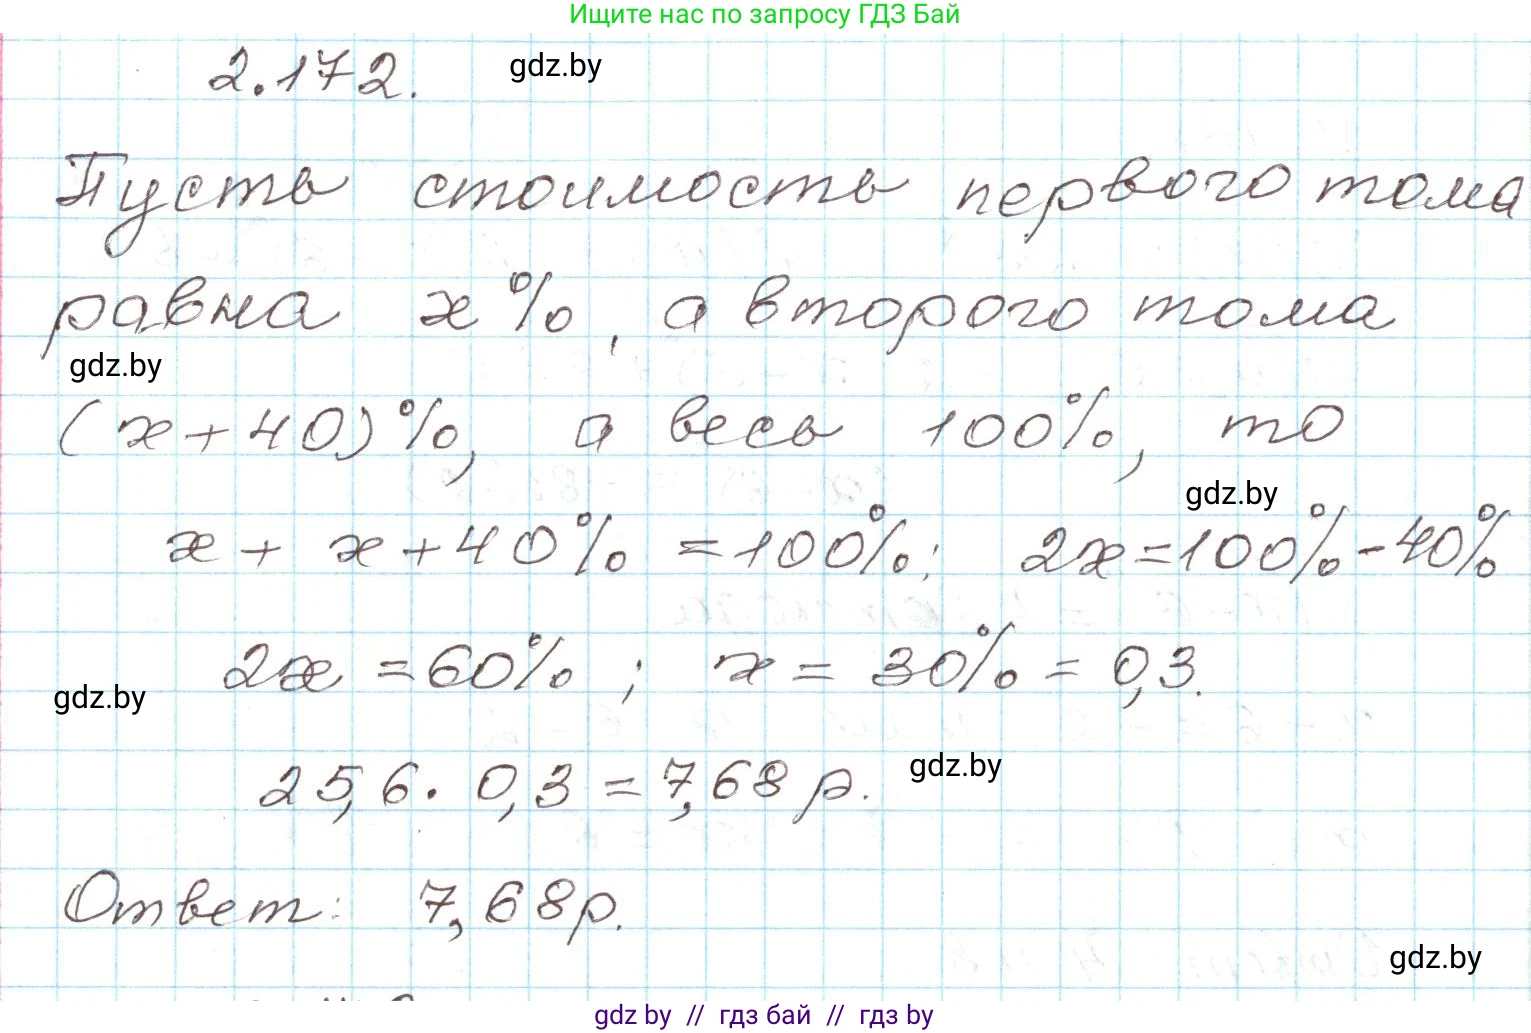 Ищите нас по запросу ГДЗ Бай
2.172.
gdz.by
Пусть стоимость первого тома
равна x%, а второго тома
gdz.by
(x+40)%, а весь 100%, то
gdz.by
x + x + 40% = 100%; 2x = 100% - 40%
2x = 60%; x = 30% = 0,3.
gdz.by
25,6 · 0,3 = 7,68 р.
gdz.by
Ответ: 7,68 р.
gdz.by
gdz by // гдз бай // гдз by